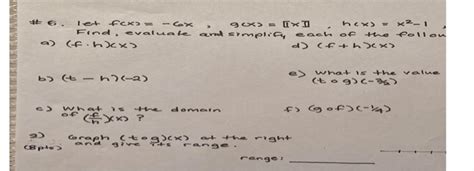 #6. Let f(x) = -6x , g(x) = ⟦x⟧ , h(x) = x²-1
Find, evaluate and simplify each of the follow
a) (f·h)(x)
d) (f+h)(x)
b) (t - h)(-2)
e) What is the value
(t o g)(-3/5)
c) What is the domain
of (f/h)(x) ?
f) (g o f)(-1/4)
g) Graph (t o g)(x) at the right
(8pts) and give its range.
range: